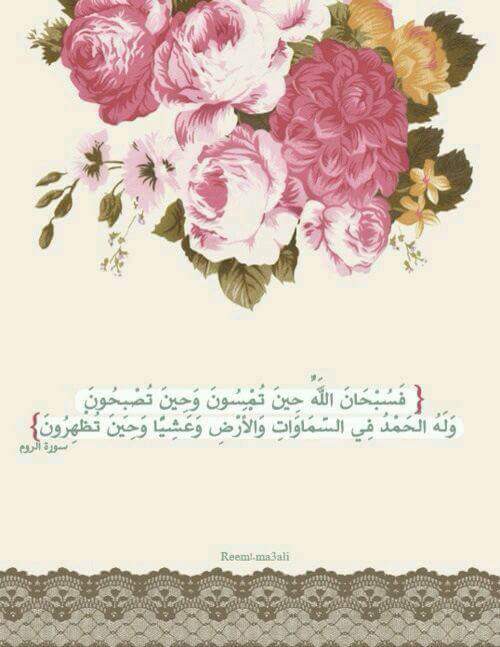 { فَسُبْحَانَ اللَّهِ حِينَ تُمْسُونَ وَحِينَ تُصْبِحُونَ
وَلَهُ الحَمْدُ فِي السَّمَاوَاتِ وَالأَرْضِ وَعَشِيًّا وَحِينَ تُظْهِرُونَ}
سورة الروم
Reem!-ma3ali